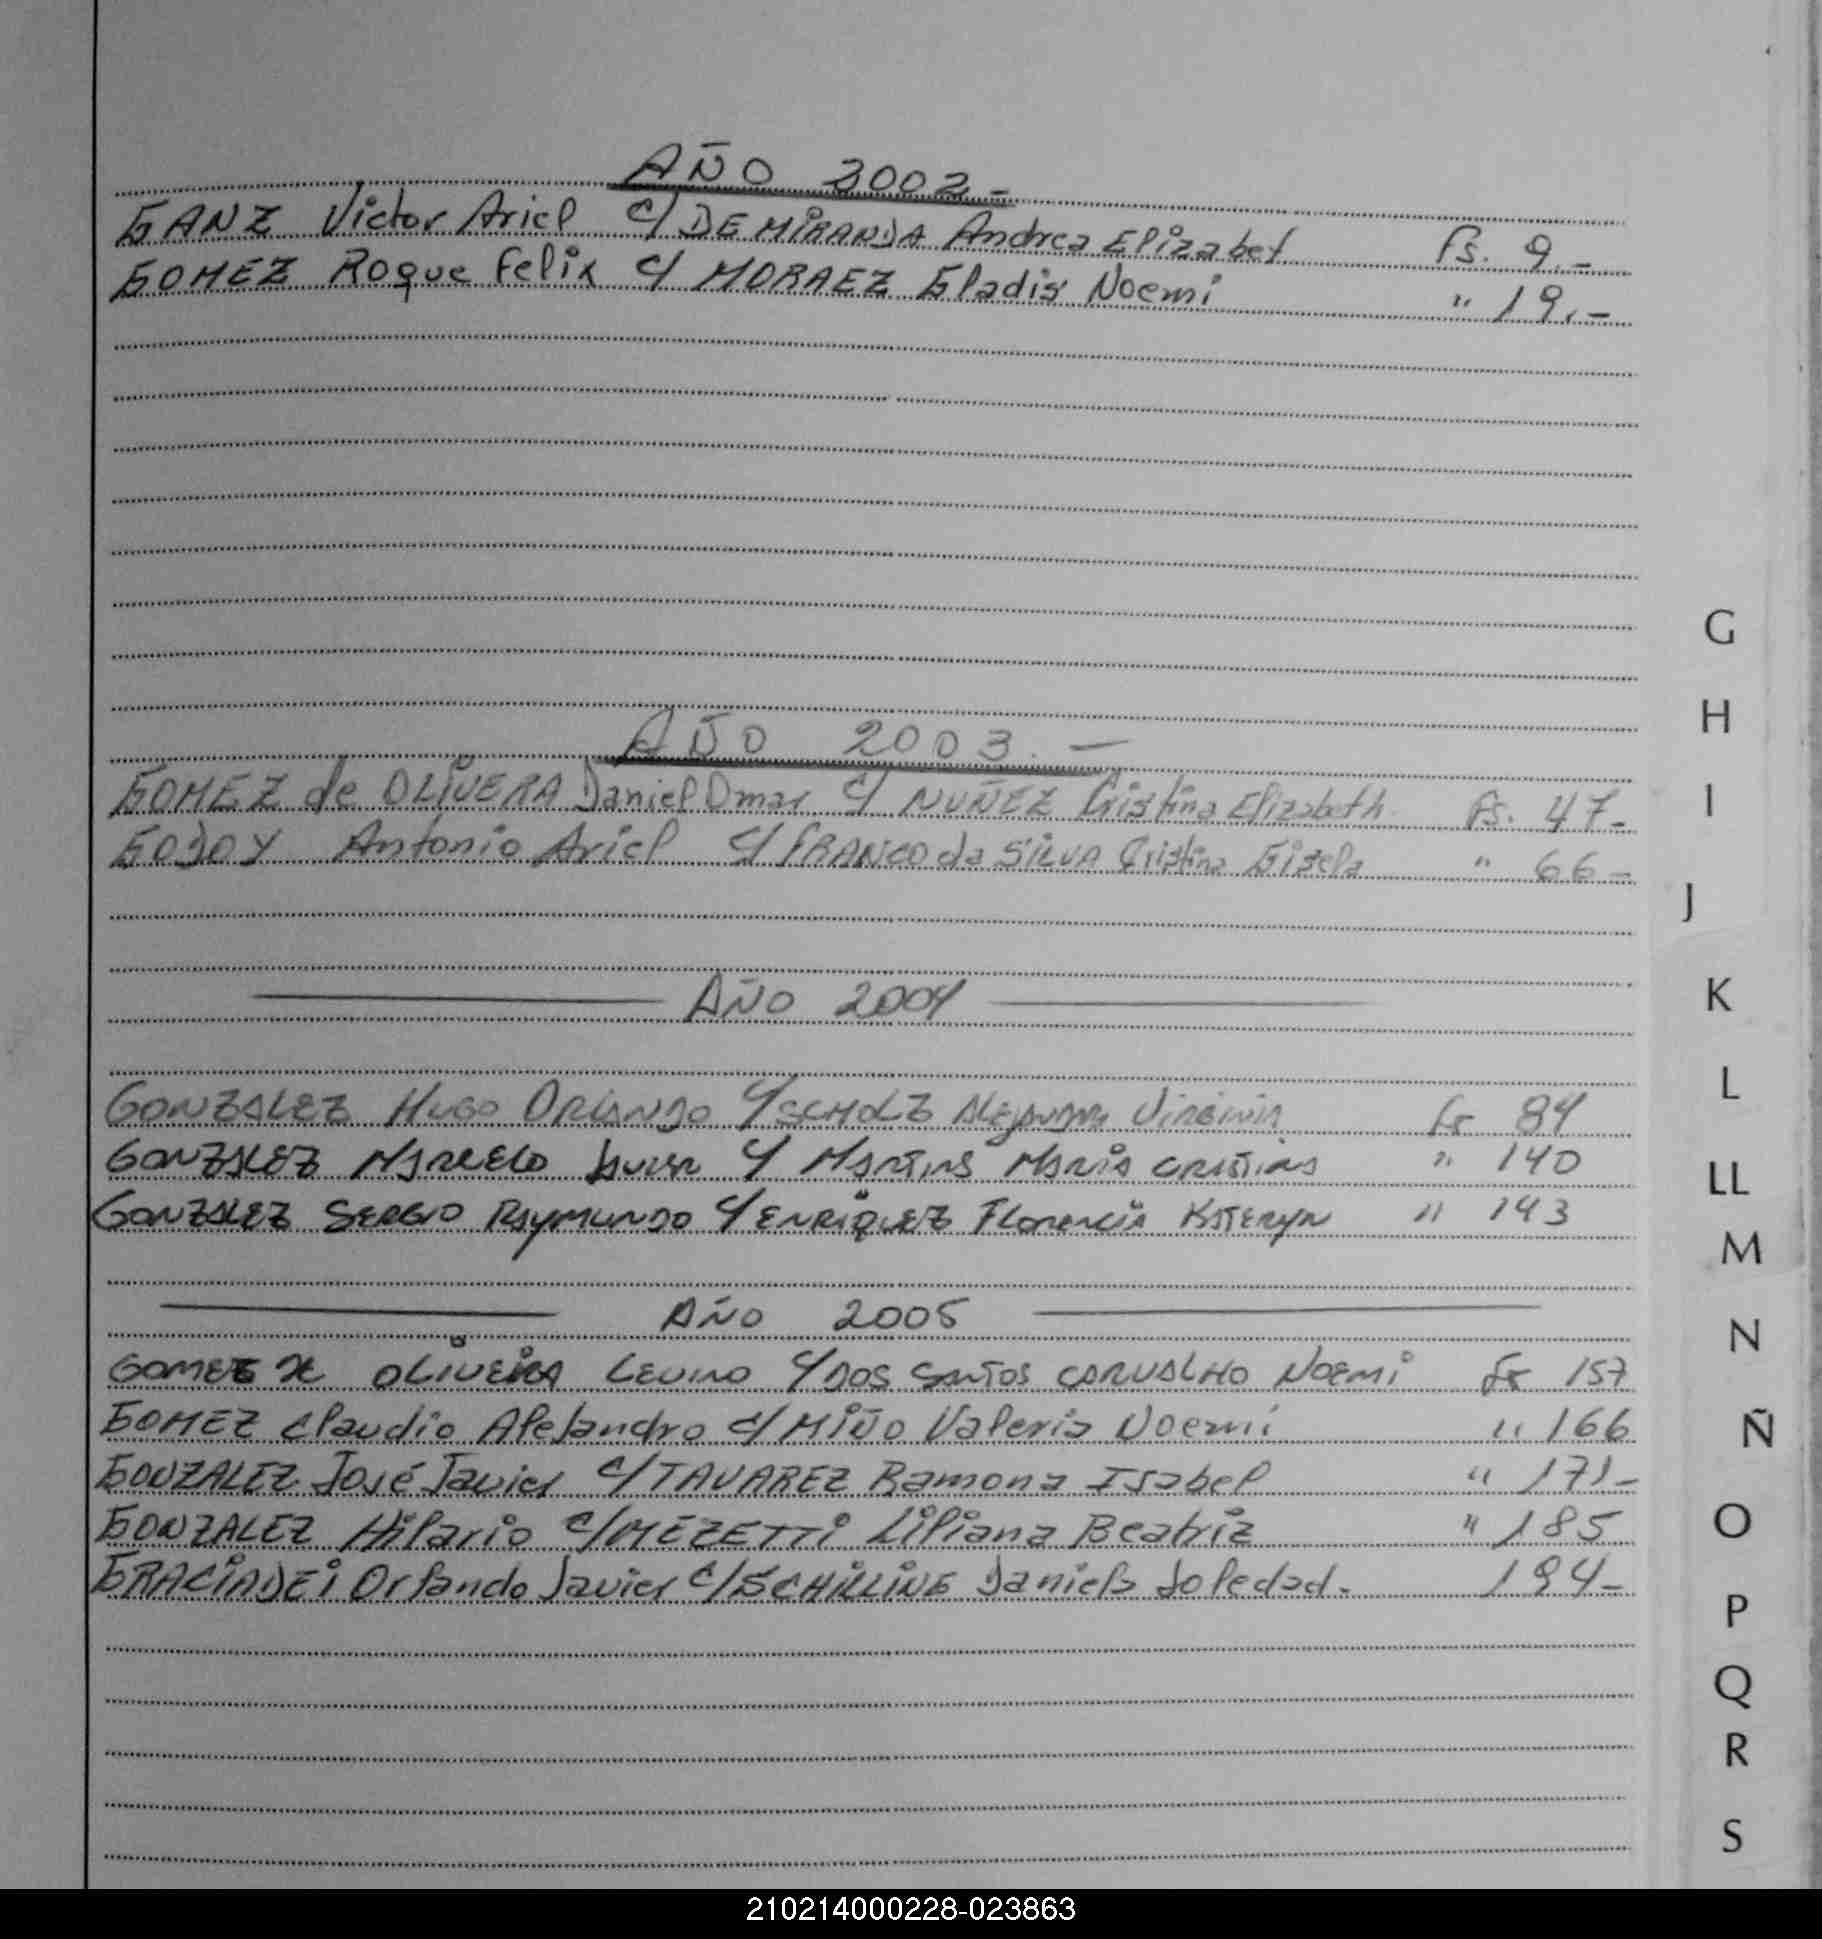 AÑO 2002.-
GANZ Victor Ariel c/ DE MIRANDA Andrea Elizabet fs. 9.-
GOMEZ Roque Felix c/ MORAEZ Gladis Noemi " 19.-
AÑO 2003.-
GOMEZ de OLIVERA Daniel Omar c/ NUÑEZ Cristina Elizabeth. fs. 47-
GODOY Antonio Ariel c/ FRANCO da SILVA Cristina Gisela " 66-
AÑO 2004
GONZALEZ HUGO ORLANDO c/ SCHOLZ ALEJANDRA VIRGINIA fs 84
GONZALEZ MARCELO JAVIER c/ MARTINS MARIA CRISTINA " 140
GONZALEZ SERGIO RAYMUNDO c/ ENRIQUEZ FLORENCIA KATERYN " 143
AÑO 2005
GOMEZ DE OLIVEIRA LEVINO c/ DOS SANTOS CARVALHO NOEMI fs 157
GOMEZ Claudio Alejandro c/ MIÑO Valeria Noemí " 166
GONZALEZ José Javier c/ TAVAREZ Ramona Isabel " 171-
GONZALEZ Hilario c/ MEZETTI Liliana Beatriz " 185
GRACIADEI Orlando Javier c/ SCHILLING Daniela Soledad. 194-
G
H
I
J
K
L
LL
M
N
Ñ
O
P
Q
R
S
210214000228-023863